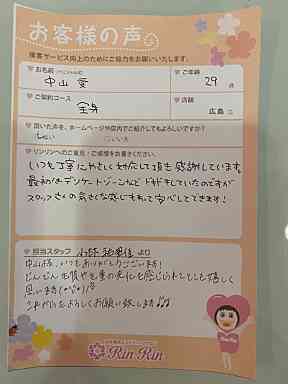 お客様の声
接客サービス向上のためにご協力をお願いいたします。
お名前
ご年齢
中山 愛
29 才
ご契約コース
店舗
全身
広島
頂いた声を、ホームページや店内でご紹介してもよろしいですか？
はい
いいえ
リンリンへのご意見・ご感想をお書きください。
いつも丁寧にやさしく対応して頂き感謝しています。
最初はデリケートゾーンなどドキドキしていたのですが
スタッフさんの気さくな感じもあって安心してできます!
担当スタッフ
より
中山様、いつもありがとうございます!
どんどんお肌や毛の変化を感じられとても嬉しく
思います
これからもよろしくお願い致します
RinRin